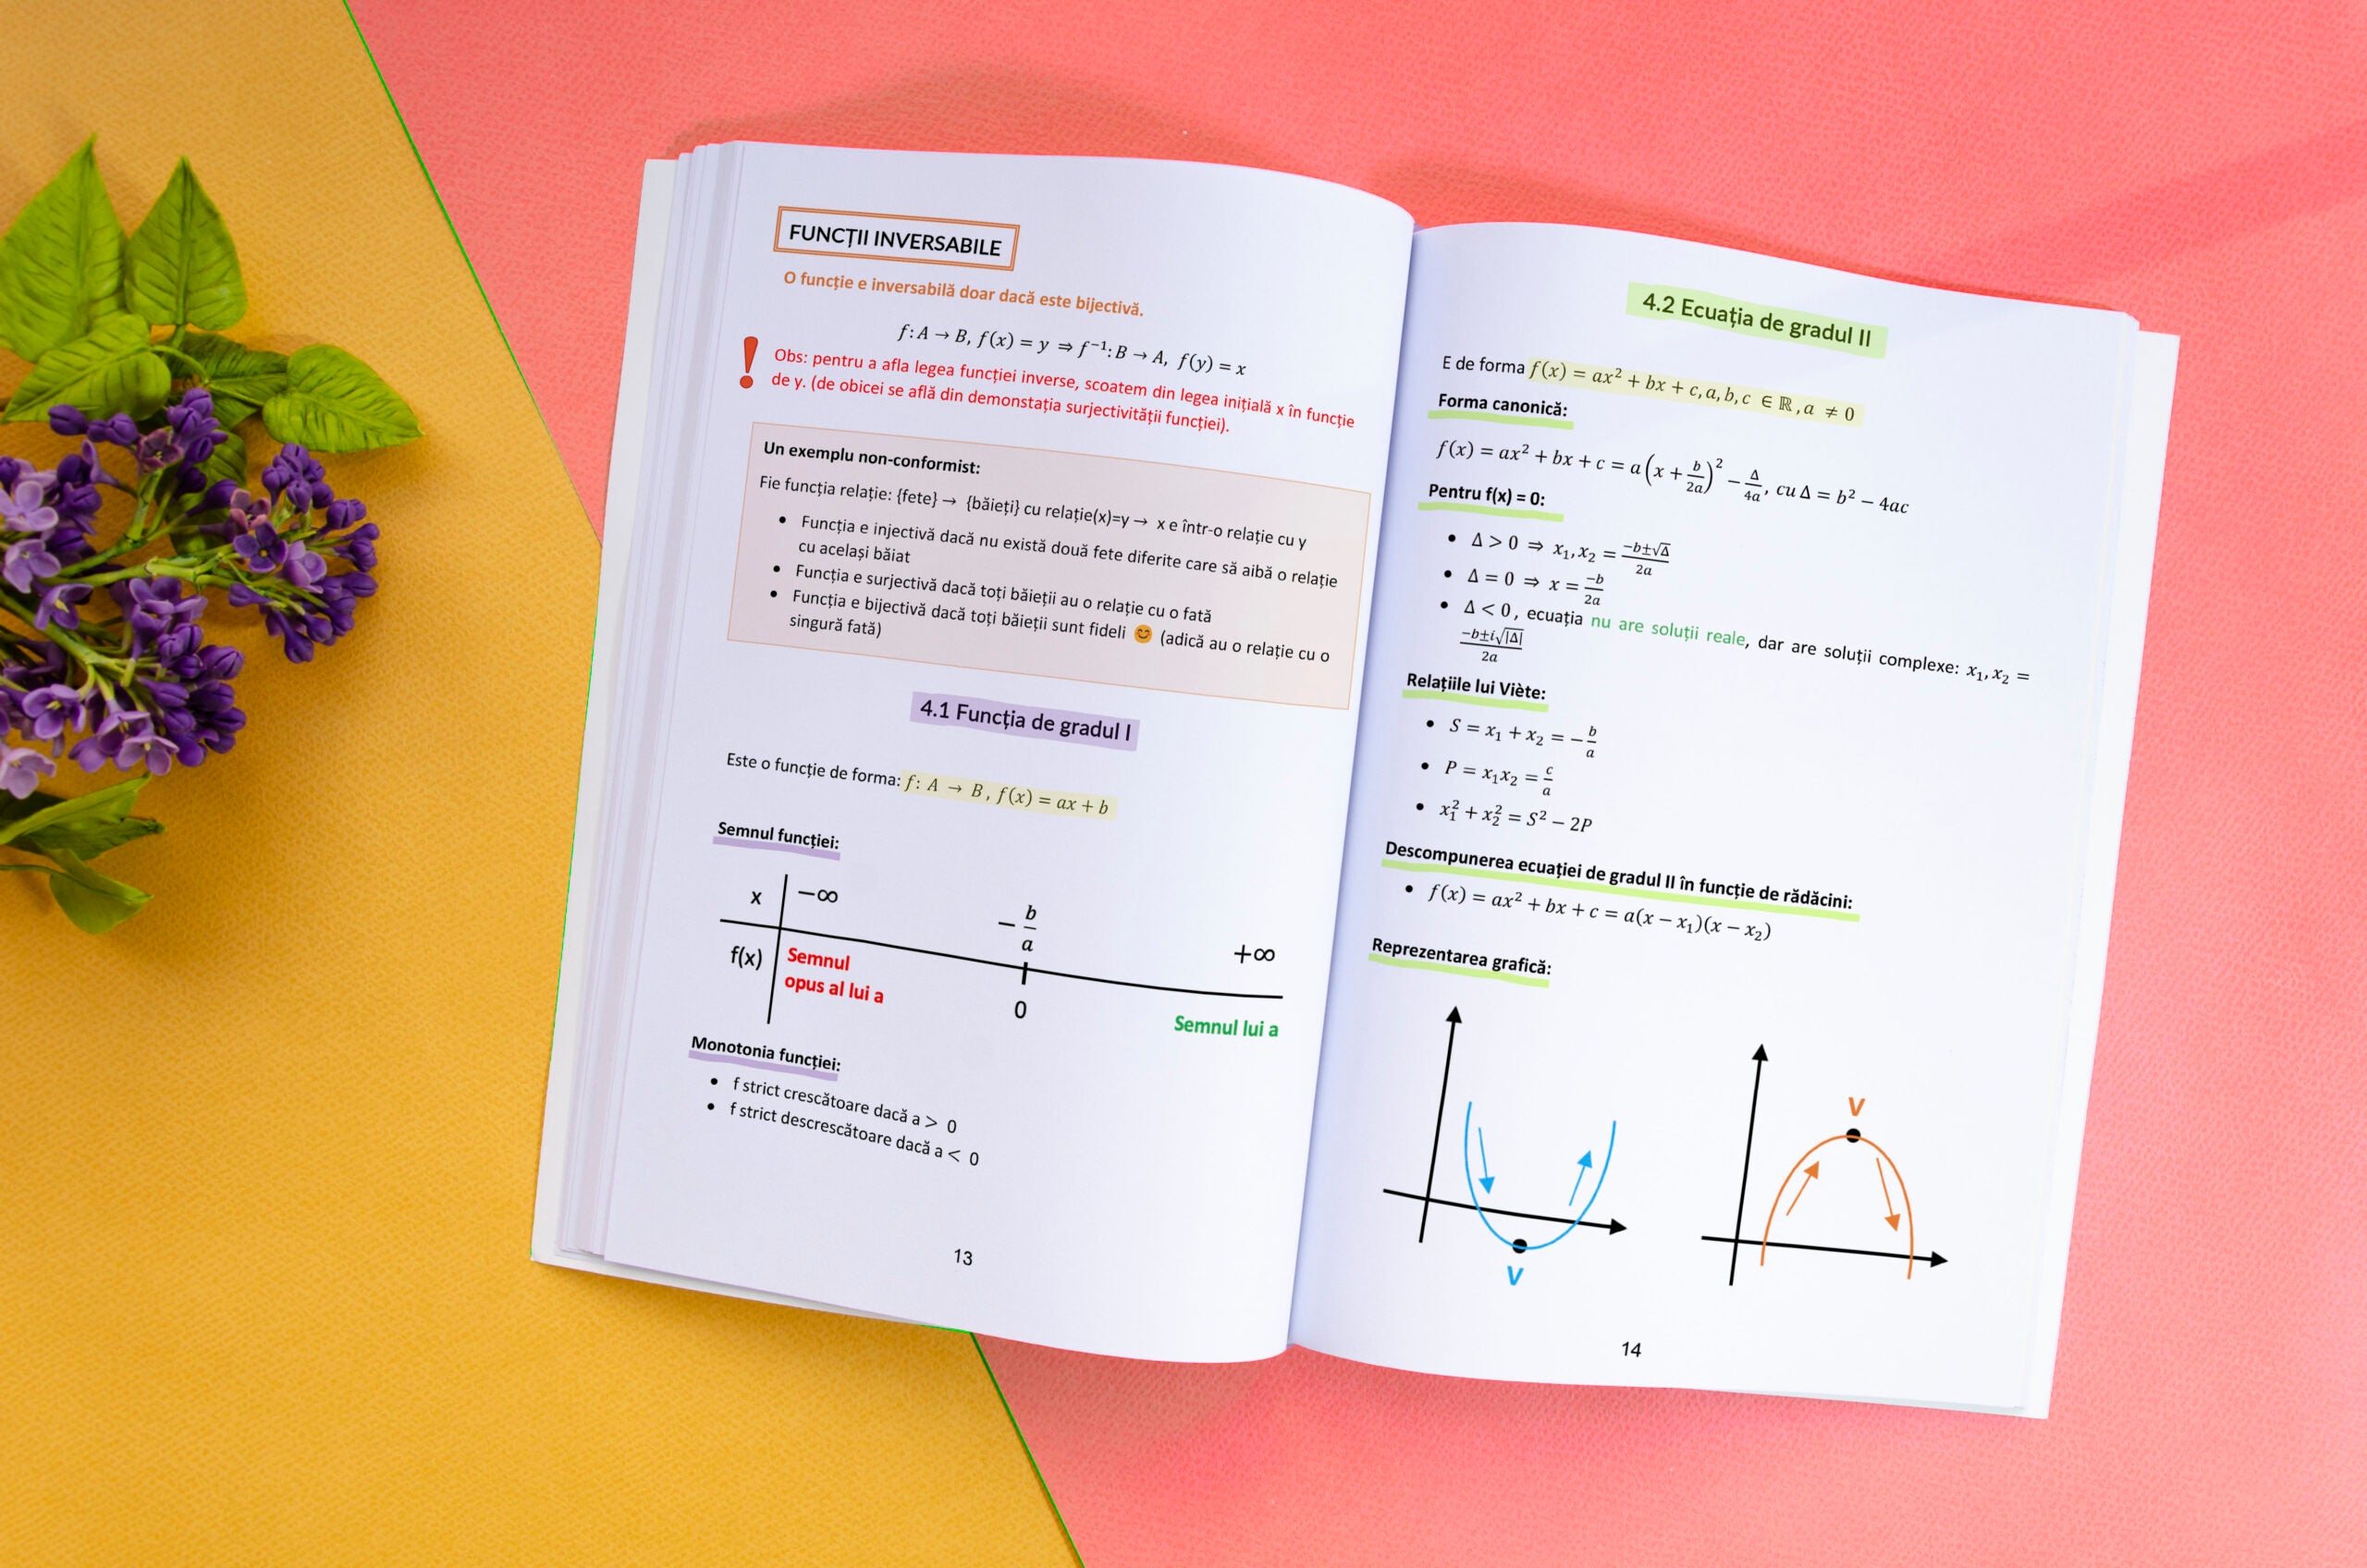 FUNCȚII INVERSABILE
O funcție e inversabilă doar dacă este bijectivă.
f: A → B, f(x) = y ⇒ f⁻¹: B → A, f(y) = x
Obs: pentru a afla legea funcției inverse, scoatem din legea inițială x în funcție
de y. (de obicei se află din demonstația surjectivității funcției).
Un exemplu non-conformist:
Fie funcția relație: {fete} → {băieți} cu relație(x)=y → x e într-o relație cu y
• Funcția e injectivă dacă nu există două fete diferite care să aibă o relație
cu același băiat
• Funcția e surjectivă dacă toți băieții au o relație cu o fată
• Funcția e bijectivă dacă toți băieții sunt fideli 😊 (adică au o relație cu o
singură fată)
4.1 Funcția de gradul I
Este o funcție de forma: f: A → B, f(x) = ax + b
Semnul funcției:
x −∞ −b/a +∞
f(x) Semnul
opus al lui a 0 Semnul lui a
Monotonia funcției:
• f strict crescătoare dacă a > 0
• f strict descrescătoare dacă a < 0
13
4.2 Ecuația de gradul II
E de forma f(x) = ax² + bx + c, a, b, c ∈ ℝ, a ≠ 0
Forma canonică:
f(x) = ax² + bx + c = a(x + b/2a)² − Δ/4a, cu Δ = b² − 4ac
Pentru f(x) = 0:
• Δ > 0 ⇒ x₁, x₂ = (−b±√Δ)/2a
• Δ = 0 ⇒ x = −b/2a
• Δ < 0, ecuația nu are soluții reale, dar are soluții complexe: x₁, x₂ =
(−b±i√|Δ|)/2a
Relațiile lui Viète:
• S = x₁ + x₂ = −b/a
• P = x₁x₂ = c/a
• x₁² + x₂² = S² − 2P
Descompunerea ecuației de gradul II în funcție de rădăcini:
• f(x) = ax² + bx + c = a(x − x₁)(x − x₂)
Reprezentarea grafică:
V
V
14